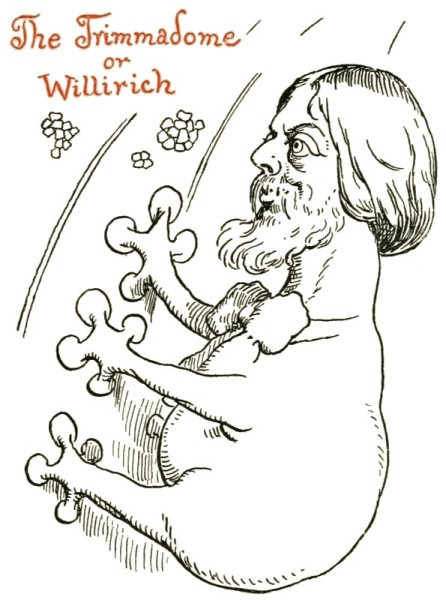 The Trimmadome
or
Willirich